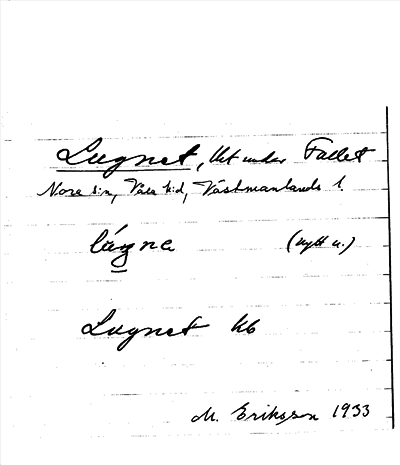 Lugnet, lht under Fallet
Nora sn, Våla hd, Västmanlands l.
lúgne (nytt u.)
Lugnet kb
M. Eriksson 1933